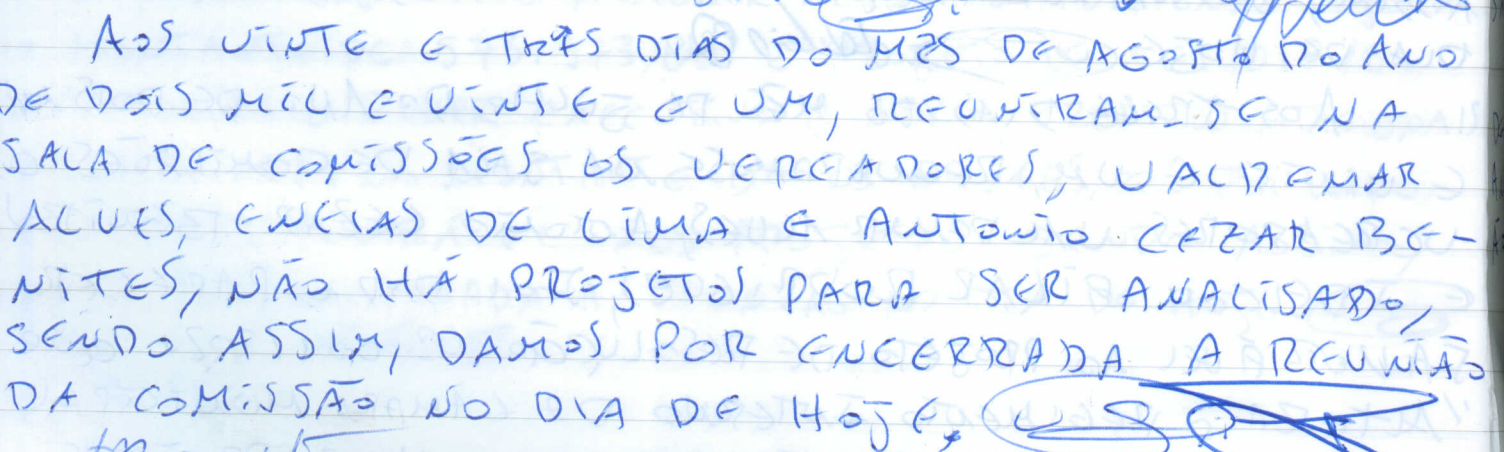 AOS VINTE E TRÊS DIAS DO MÊS DE AGOSTO DO ANO
DE DOIS MIL E VINTE E UM, REUNIRAM-SE NA
SALA DE COMISSÕES OS VEREADORES, VALDEMAR
ALVES, ENEIAS DE LIMA E ANTONIO CEZAR BE-
NITES, NÃO HÁ PROJETOS PARA SER ANALISADO,
SENDO ASSIM, DAMOS POR ENCERRADA A REUNIÃO
DA COMISSÃO NO DIA DE HOJE,